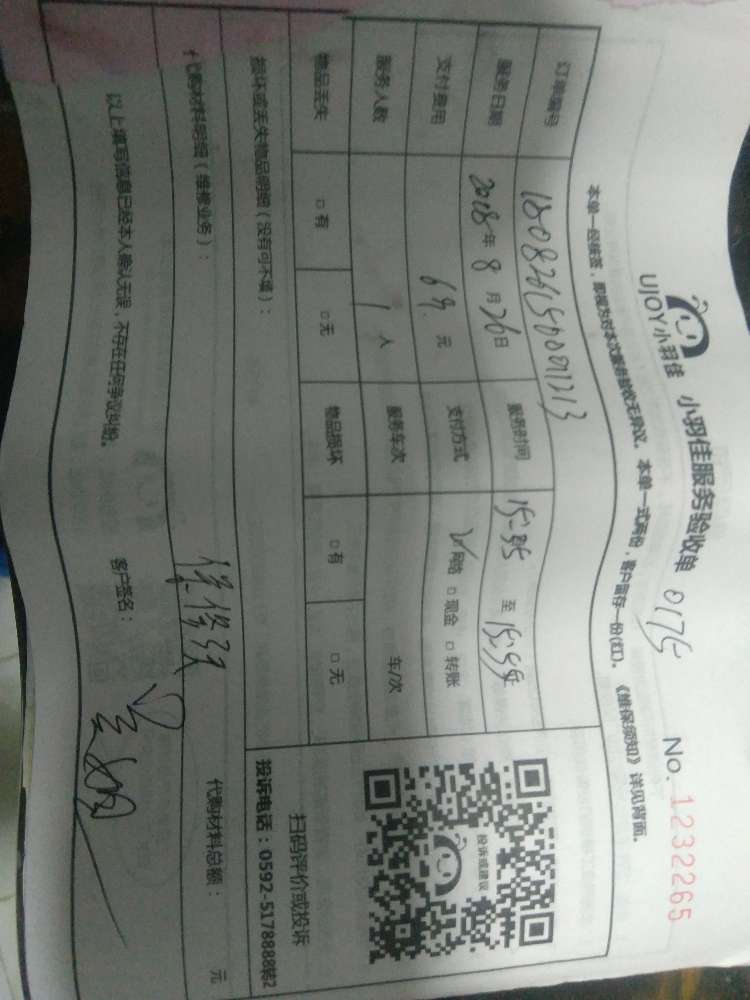 UJOY小羽佳 小羽佳服务验收单 0175 No. 1232265
本单一经核签，即视为对本次服务验收无异议。本单一式两份，客户留存一份(红)。《维保须知》详见背面。
订单编号
服务日期 2018年8月26日 服务时间 15:35 至 15:55
支付费用 元 支付方式 ☑网络 □现金 □转账
服务人数 1 人 服务车次 车/次
物品丢失 □有 □无 物品损坏 □有 □无
损坏或丢失物品明细（没有可不填）：
投诉或建议
扫码评价或投诉
投诉电话：0592-5178888转2
代购材料明细（维修业务）：
代购材料总额： 元
以上填写信息已经本人确认无误，不存在任何争议纠纷。 客户签名：